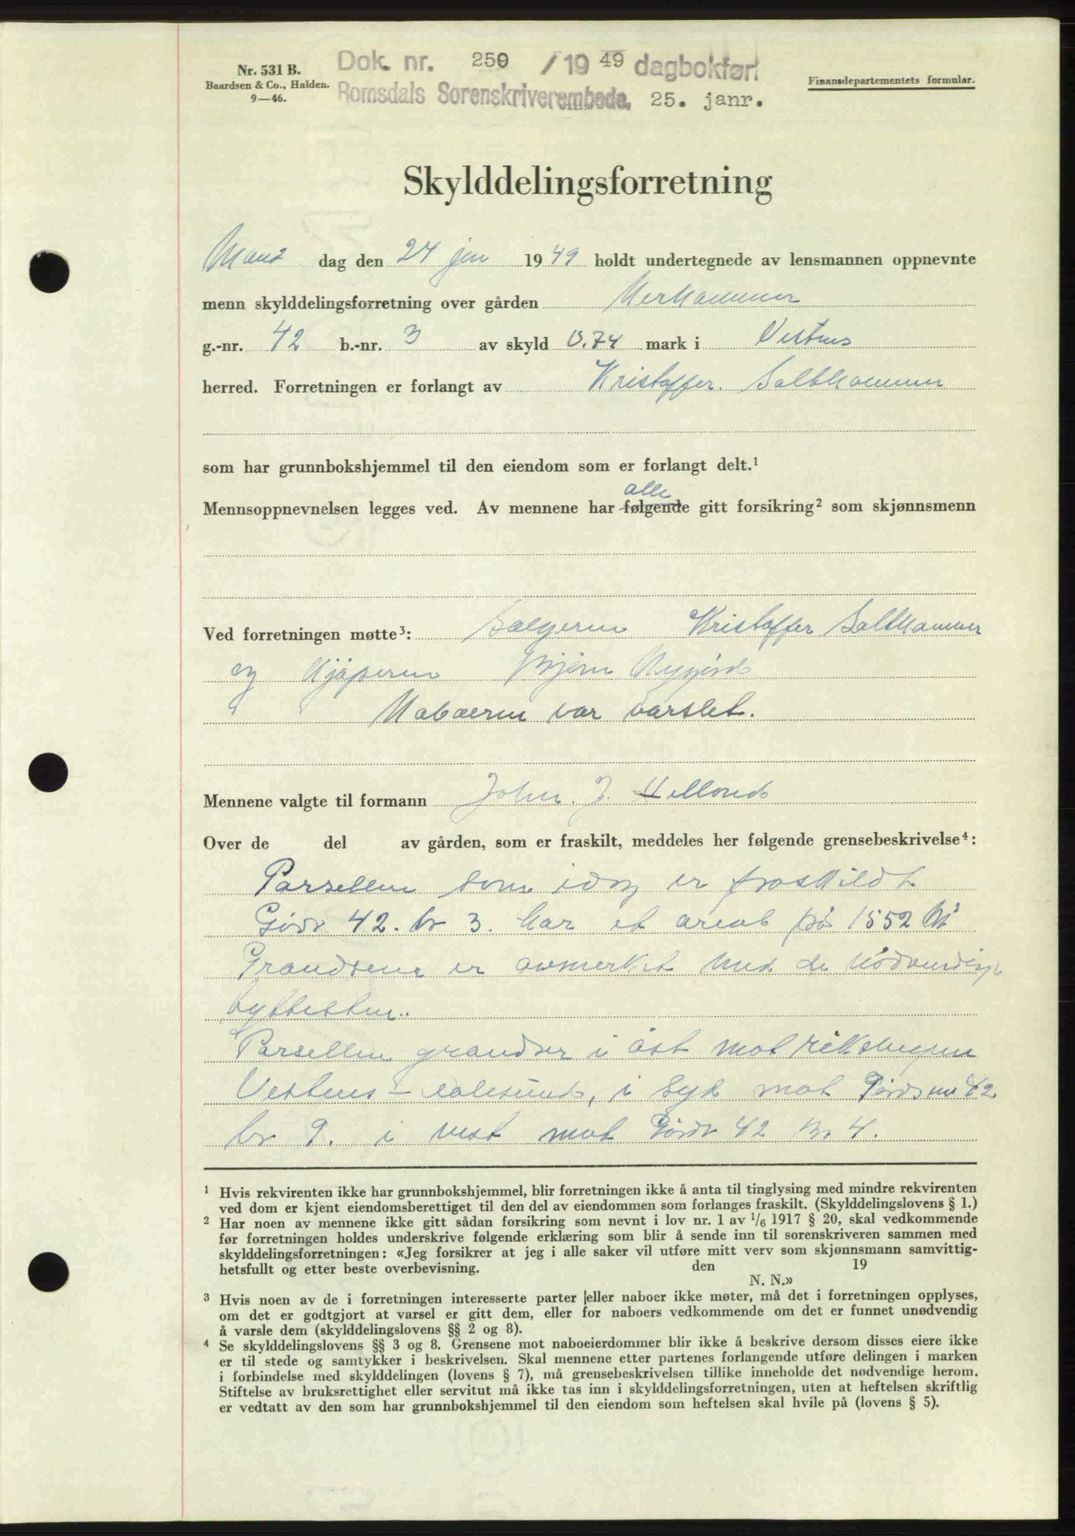 Nr. 531 B.
Baardsen & Co., Halden.
9—46.
Dok. nr. 250 / 19 49 dagbokført
Romsdals Sorenskriverembede. 25. janr.
Finansdepartementets formular.
Skylddelingsforretning
Man dag den 24 jan 1949 holdt undertegnede av lensmannen oppnevnte
menn skylddelingsforretning over gården
g.-nr. 42 b.-nr. 3 av skyld 0.74 mark i Vestnes
herred. Forretningen er forlangt av Kristoffer. Salthammer
som har grunnbokshjemmel til den eiendom som er forlangt delt.¹
alle
Mennsoppnevnelsen legges ved. Av mennene har følgende gitt forsikring² som skjønnsmenn
Ved forretningen møtte³: Sælgeren Kristoffer Salthammer
og Kjøperen Bjørn
Naboerne var varslet.
Mennene valgte til formann John. J. Helland
Over de del av gården, som er fraskilt, meddeles her følgende grensebeskrivelse⁴:
Parsellen som idag er fraskildt
Gårdr 42. br 3. har et areal på 1552 M²
Grandsene er avmerket med de nødvendige
byttesten..
Parsellen grandser i øst mot riksvegen
Vestnes – Aalesund, i syd mot Gårdsnr 42
br 9. i vest mot Gårdr 42 br 4.
¹ Hvis rekvirenten ikke har grunnbokshjemmel, blir forretningen ikke å anta til tinglysing med mindre rekvirenten
ved dom er kjent eiendomsberettiget til den del av eiendommen som forlanges fraskilt. (Skylddelingslovens § 1.)
² Har noen av mennene ikke gitt sådan forsikring som nevnt i lov nr. 1 av 1/6 1917 § 20, skal vedkommende
før forretningen holdes underskrive følgende erklæring som blir å sende inn til sorenskriveren sammen med
skylddelingsforretningen: «Jeg forsikrer at jeg i alle saker vil utføre mitt verv som skjønnsmann samvittig-
hetsfullt og etter beste overbevisning. den 19
N. N.»
³ Hvis noen av de i forretningen interesserte parter eller naboer ikke møter, må det i forretningen opplyses,
om det er godtgjort at varsel er gitt dem, eller for naboers vedkommende om det er funnet unødvendig
å varsle dem (skylddelingslovens §§ 2 og 8).
⁴ Se skylddelingslovens §§ 3 og 8. Grensene mot naboeierdommer blir ikke å beskrive dersom disses eiere ikke
er til stede og samtykker i beskrivelsen. Skal mennene etter partenes forlangende utføre delingen i marken
i forbindelse med skylddelingen (lovens § 7), må grensebeskrivelsen tillike inneholde det nødvendige herom.
Stiftelse av bruksrettighet eller servitut må ikke tas inn i skylddelingsforretningen, uten at heftelsen skriftlig
er vedtatt av den som har grunnbokshjemmel til den eiendom som heftelsen skal hvile på (lovens § 5).